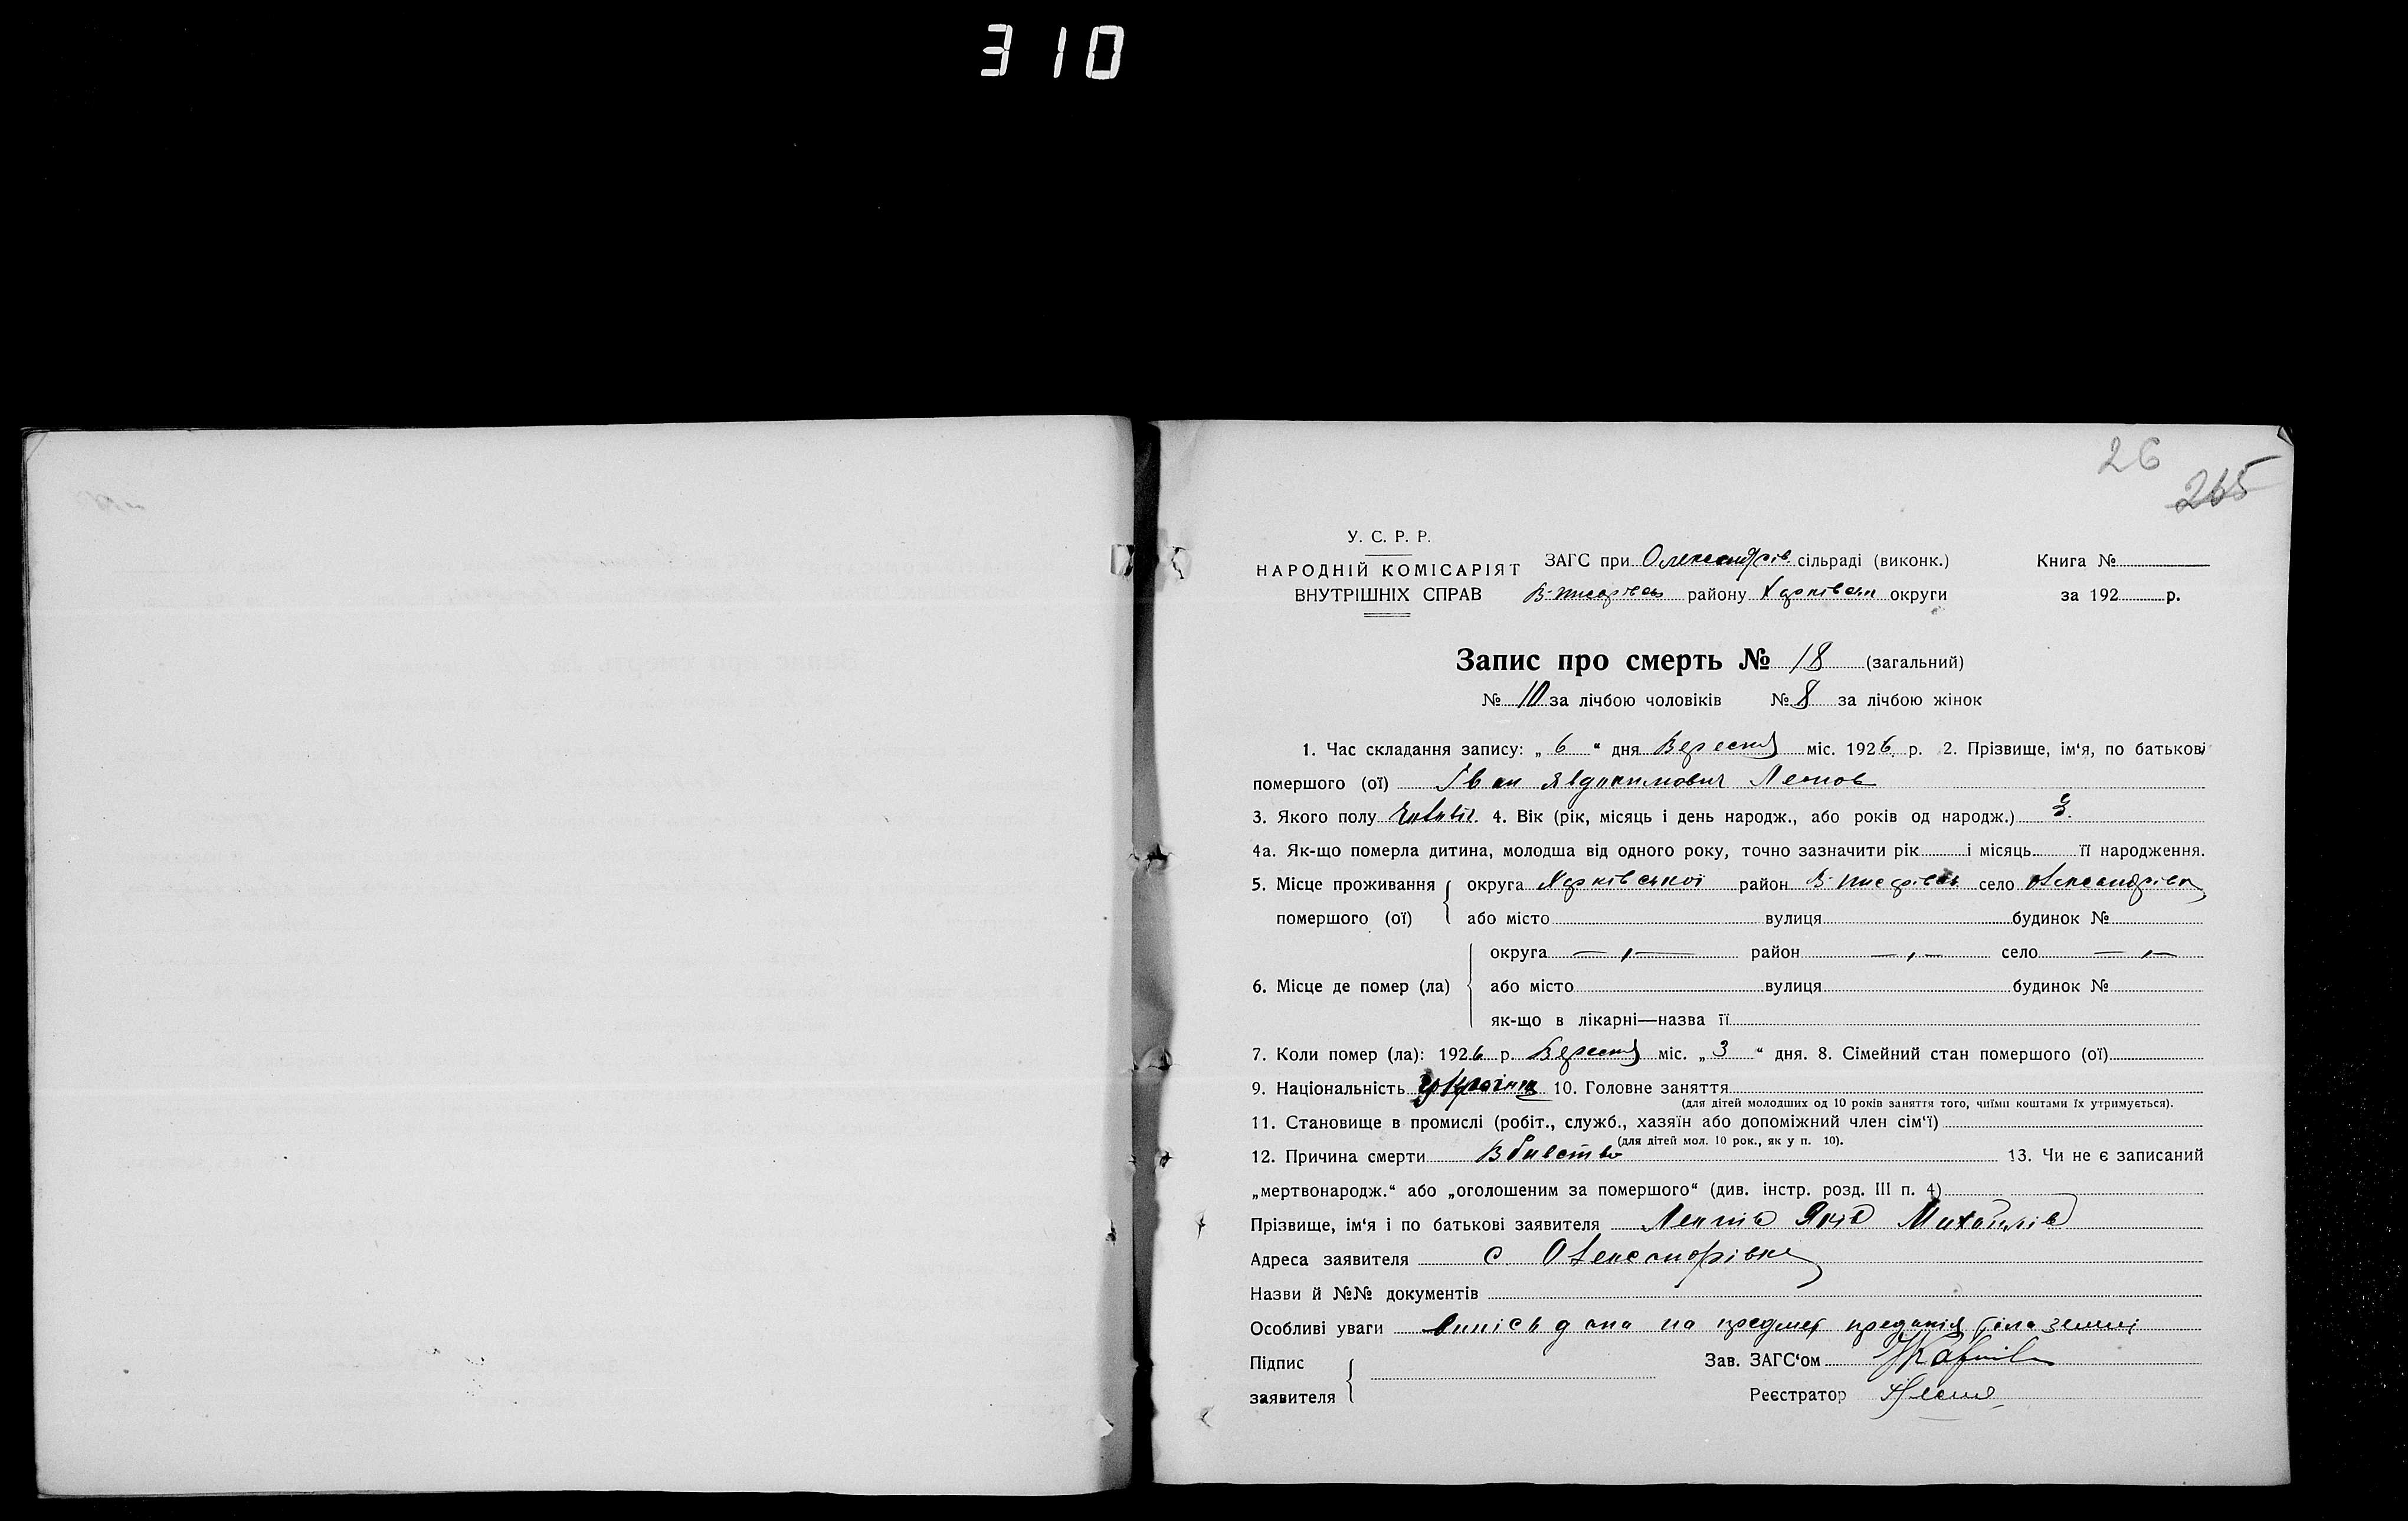 310
26
265
У. С. Р. Р.
НАРОДНІЙ КОМІСАРІЯТ
ВНУТРІШНІХ СПРАВ
ЗАГС при Олександрів. сільраді (виконк.)
В-Писарівськ району Харківськ округи
Книга №
за 192 р.
Запис про смерть № 18 (загальний)
№ 10 за лічбою чоловіків № 8 за лічбою жінок
1. Час складання запису: „ 6 “ дня Вересня міс. 1926 р. 2. Прізвище, ім‘я, по батькові
помершого (ої) Іван Явдокимович
3. Якого полу 4. Вік (рік, місяць і день народж., або років од народж.) 3.
4а. Як-що померла дитина, молодша від одного року, точно зазначити рік і місяць її народження.
5. Місце проживання округа Харківської район В-Писарівськ село Олександрівка
помершого (ої) або місто вулиця будинок №
округа — „ — район — „ — село — „ —
6. Місце де помер (ла) або місто вулиця будинок №
як-що в лікарні—назва її
7. Коли помер (ла): 1926 р. Вересня міс. „ 3 “ дня. 8. Сімейний стан помершого (ої)
9. Національність 10. Головне заняття
(для дітей молодших од 10 років заняття того, чиїми коштами їх утримується).
11. Становище в промислі (робіт., служб., хазяїн або допоміжний член сім‘ї)
(для дітей мол. 10 рок., як у п. 10).
12. Причина смерти Вбивство 13. Чи не є записаний
„мертвонародж.“ або „оголошеним за помершого“ (див. інстр. розд. III п. 4)
Прізвище, ім‘я і по батькові заявителя Яків Михайлів
Адреса заявителя с. Олександрівка
Назви й №№ документів
Особливі уваги дана на предмет преданія тіла землі
Підпис
заявителя
Зав. ЗАГС‘ом
Реєстратор